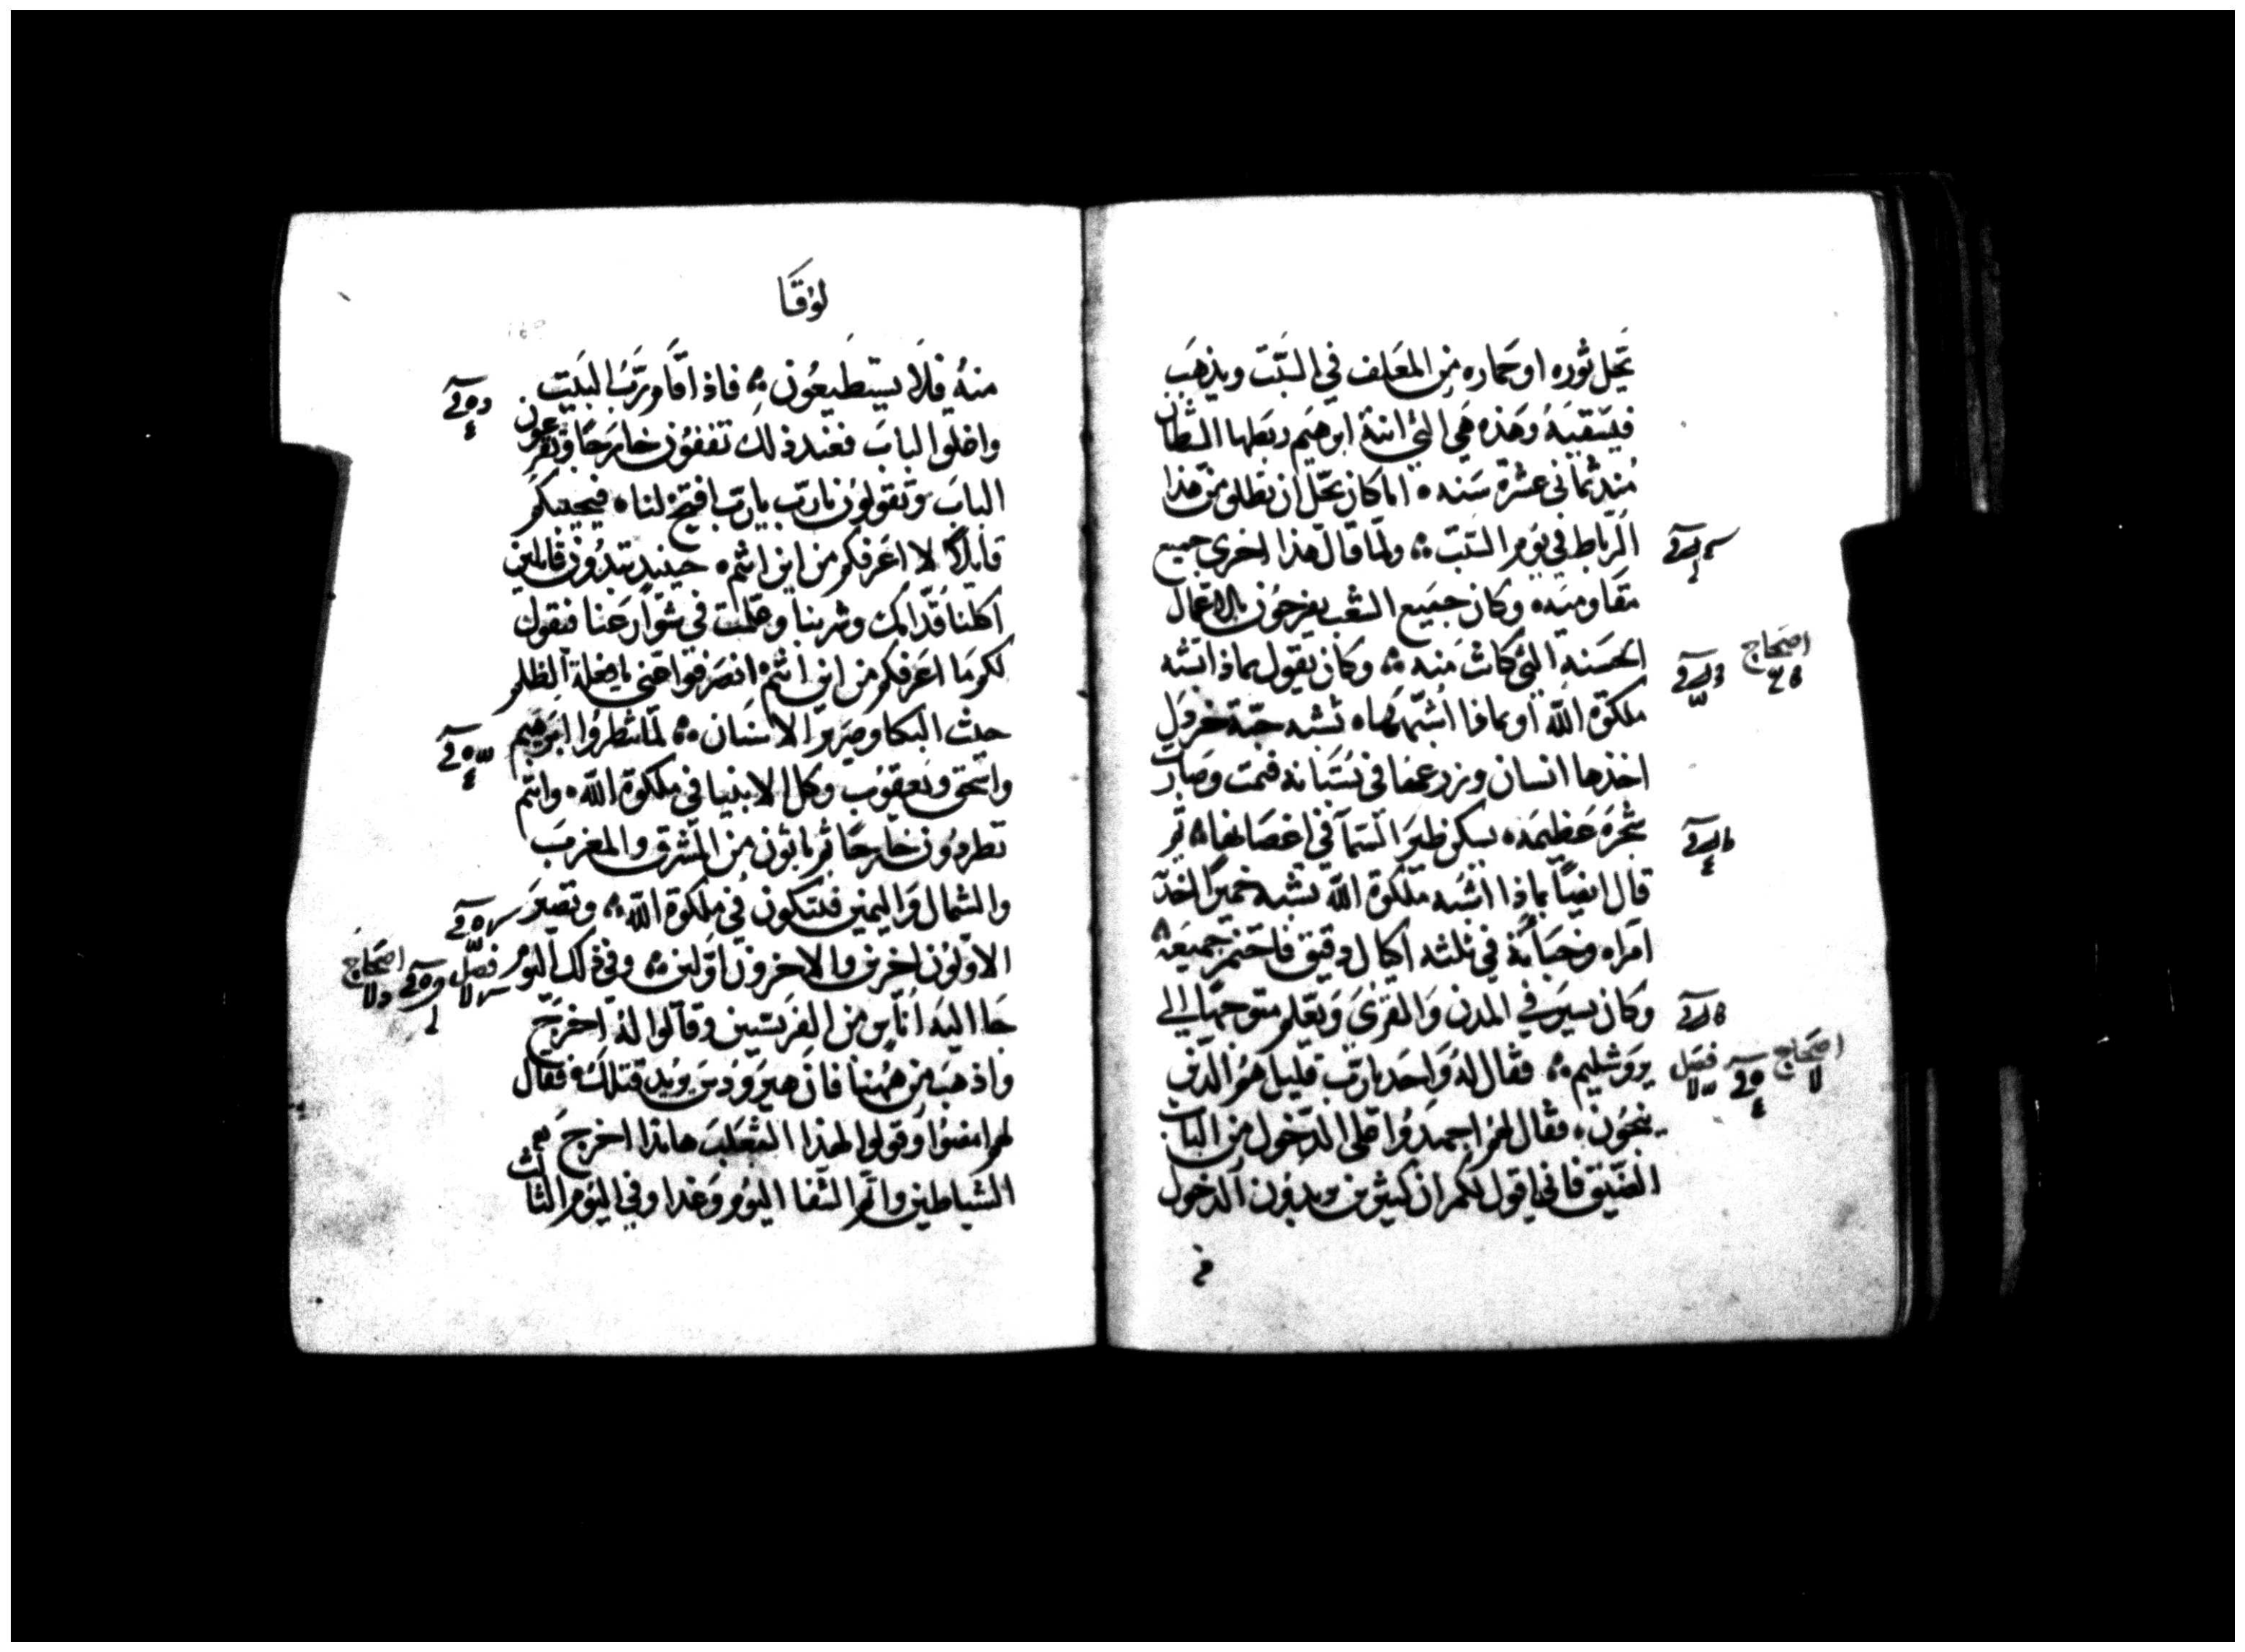 يحل ثوره او حماره من المعلف في السبت ويذهب
فيسقيه وهذه هي التي ابنة ابرهيم ربطها الشطان
مند ثماني عشرة سنه ۰ اما كان يحل ان تطلق من هذا
الرباط في يوم السبت ۞ ولما قال هذا اخزي جميع
مقاوميه ۰ وكان جميع الشعب يفرحون بالاعمال
الحسنة التي كانت منه ۞ وكان يقول بماذا اشبه
ملكوة الله او بماذا اشبهها ۰ تشبه حبة خردل
اخذها انسان وزرعها في بستانه فنمت وصارت
شجرة عظيمه ۰ يسكن طير السما في اغصانها ۞ ثم
قال ايضا بماذا اشبه ملكوة الله تشبه خميرا اخذته
امراه وخباته في ثلثه اكيال دقيق فاختمر جميعه ۞
وكان يسير في المدن والقري ويعلم متوجها الي
يروشليم ۞ فقال له واحد يارب قليل هم الدين
ينجون ۰ فقال لهم اجهدوا علي الدخول من الباب
الضيق فاني اقول لكم ان كثيرين يريدون الدخول
اصحاح
اصحاح
فصل
لوقا
منه فلا يستطيعون ۞ فاذا قام رب البيت
واغلق الباب فعند ذلك تقفون خارجا وتقرعون
الباب وتقولون يارب يارب افتح لنا ۰ فيجيبكم
قايلا لا اعرفكم من اين انتم ۰ حينيد تبدون قايلين
اكلنا قدامك وشربنا وعلمت في شوارعنا فيقول
لكم ما اعرفكم من اين انتم ۰ انصرفوا عني يا فعلة الظلم
حيث البكا وصرير الاسنان ۞ لما تنظروا ابرهيم
واسحق ويعقوب وكل الانبيا في ملكوة الله ۰ وانتم
تطردون خارجا ثم ياتون من المشرق والمغرب
والشمال واليمين فيتكون في ملكوة الله ۞ وتصير
الاولون اخرين والاخرون اولين ۞ وفي ذلك اليوم
جا اليه اناس من الفريسيين وقالوا له اخرج
واذهب من ههنا فان هيرودس يريد قتلك ۰ فقال
لهم امضوا وقولوا لهذا الثعلب هانذا اخرج
الشياطين واتم الشفا اليوم وغدا وفي اليوم الثالث
فصل
اصحاح